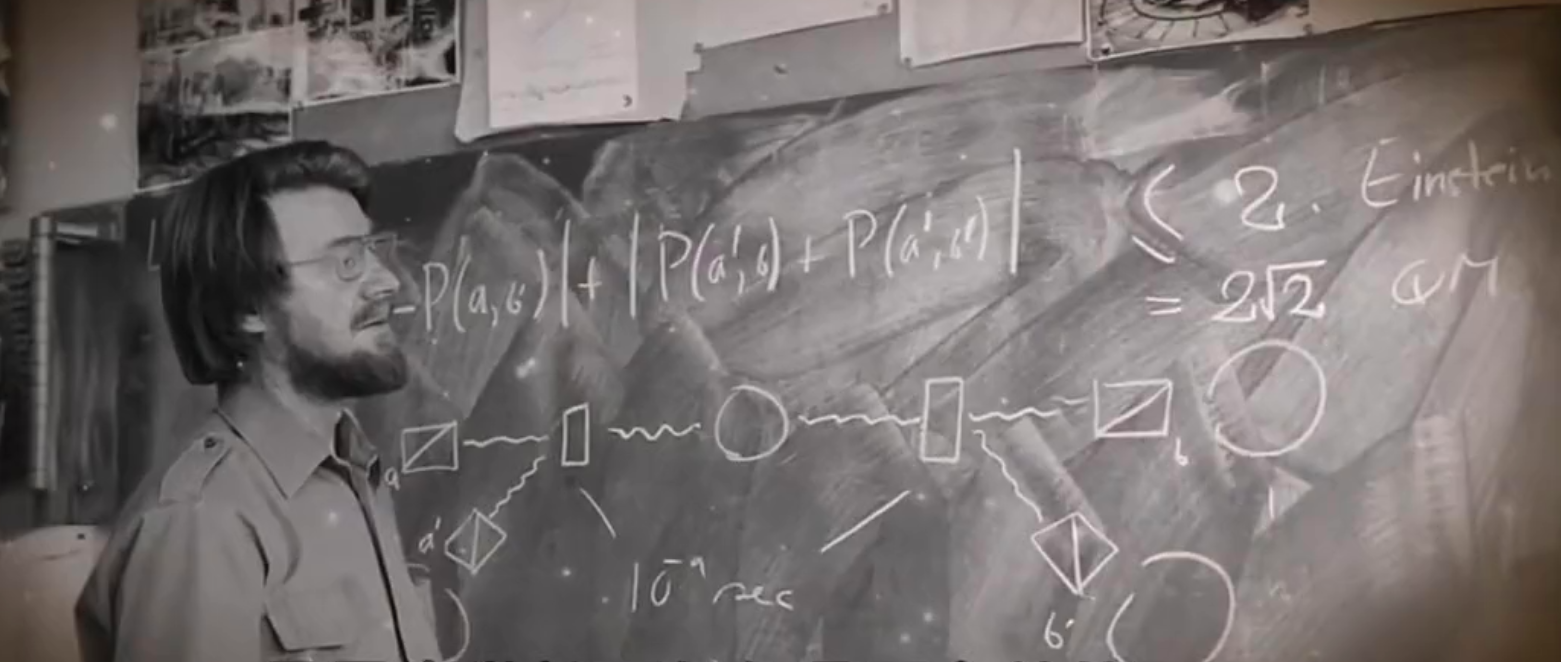 -P(a,b')|+|P(a',b)+P(a',b')| < 2. Einstein
= 2√2 QM
a b
a' b'
10⁻⁹ sec